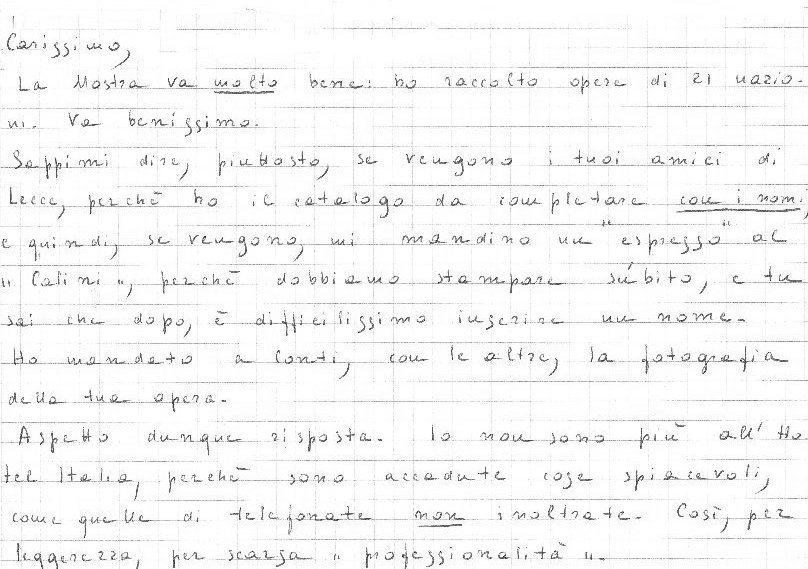 Carissimo,
La Mostra va molto bene: ho raccolto opere di 21 nazio-
ni. Va benissimo.
Sappimi dire, piuttosto, se vengono i tuoi amici di
Lecce, perchē ho il catalogo da completare con i nomi,
e quindi, se vengono, mi mandino un "espresso" al
"Calini", perchē dobbiamo stampare súbito, e tu
sai che dopo, ē difficilissimo inserire un nome.
Ho mandato a Conti, con le altre, la fotografia
della tua opera.
Aspetto dunque risposta. Io non sono piū all'Ho
tel Italia, perchē sono accadute cose spiacevoli,
come quelle di telefonate non inoltrate. Così, per
leggerezza, per scarsa "professionalità".